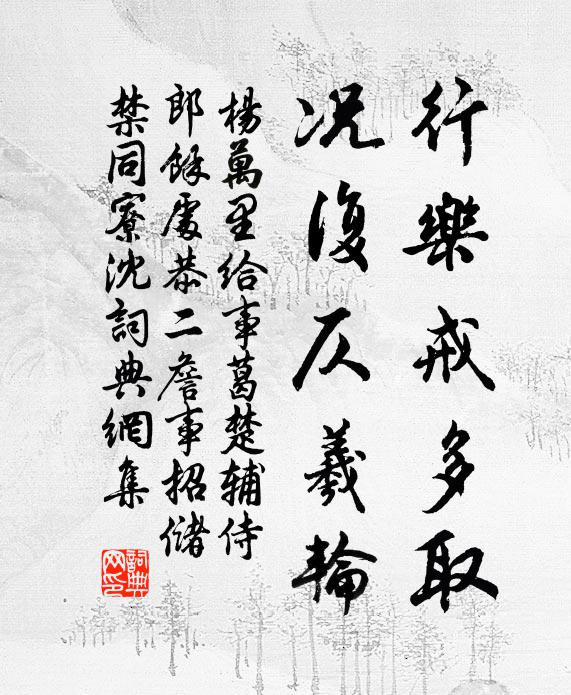 行樂戒多取
况復仄羲輪
楊萬里給事葛楚輔侍
郎餘處恭二詹事招儲
禁同寮沈詞典網集
詞典
网印